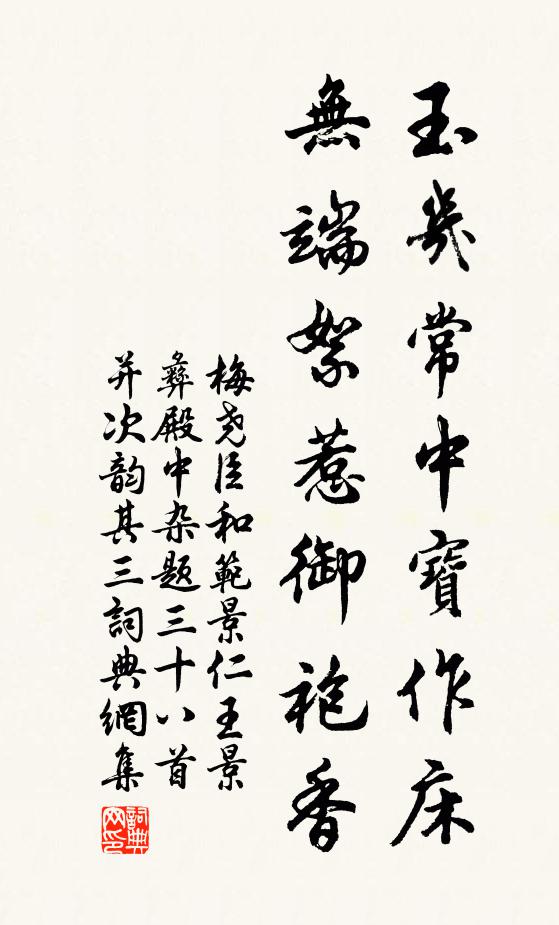 玉幾常中寶作床
無端絮惹御袍香
梅尧臣和範景仁王景
彝殿中杂题三十八首
并次韵其三詞典網集
詞典网印